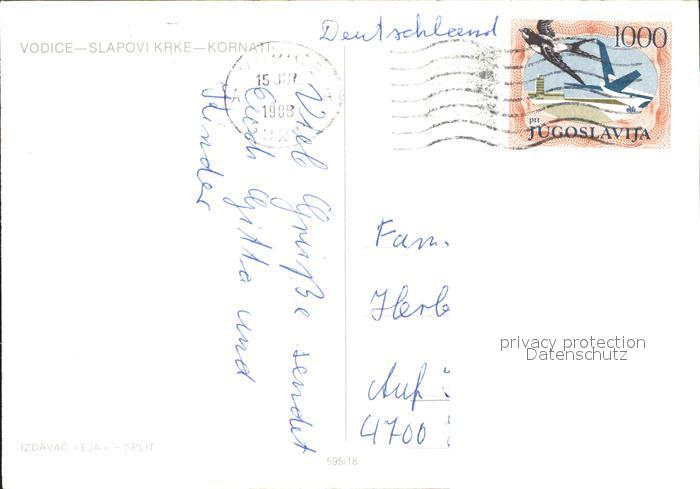 Deutschland
1000
ptt
JUGOSLAVIJA
VODICE—SLAPOVI KRKE—KORNATI
15 JU
1988
Viele Grüße sendet
Euch Gitta und
Kinder
Fam.
Herb
Auf
4700
privacy protection
Datenschutz
IZDAVAČ »EJA« – SPLIT
595/18